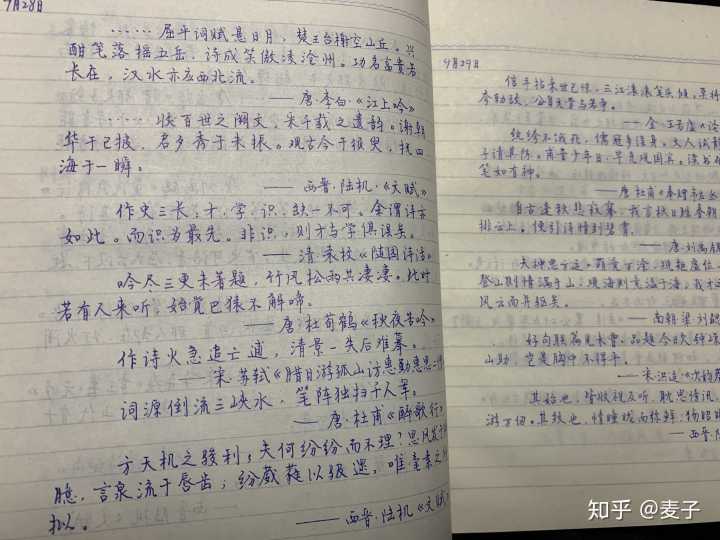 9月28日
……屈平词赋悬日月，楚王台榭空山丘。兴
酣笔落摇五岳，诗成笑傲凌沧州。功名富贵若
长在，汉水亦应西北流。
——唐·李白·《江上吟》
……收百世之阙文，采千载之遗韵。谢朝
华于已披，启夕秀于未振。观古今于须臾，抚四
海于一瞬。
——西晋·陆机·《文赋》
作史三长，才、学、识，缺一不可。余谓诗亦
如此。而识为最先。非识，则才与学俱误矣。
——清·袁枚《随园诗话》
吟尽三更未著题，竹风松雨共凄凄。此时
若有人来听，始觉巴猿不解啼。
——唐·杜荀鹤《秋夜苦吟》
作诗火急追亡逋，清景一失后难摹。
——宋·苏轼《腊日游孤山访惠勤惠思二
词源倒流三峡水，笔阵独扫千人军。
——唐·杜甫《醉歌行》
方天机之骏利，夫何纷而不理？思风发于
臆，言泉流于唇齿；纷葳蕤以馺遝，唯毫素之
拟。
——西晋·陆机《文赋》
9月29日
信手拈来世已惊，三江滚滚笔头倾。莫将
夸勍敌，公自无劳与若争。
——金·王若虚《论
纨绔不饿死，儒冠多误身。丈人试静
子请具陈。甫昔少年日，早充观国宾。读书
笔如有神。
——唐·杜甫《奉赠韦左丞
自古逢秋悲寂寥，我言秋日胜春朝
排云上，便引诗情到碧霄。
——唐·刘禹锡
夫神思方运，万涂竞萌，规矩虚位
登山则情满于山，观海则意溢于海，我才
风云而并驱矣。
——南朝梁·刘勰
山助，岂是胸中不得平。
——宋·洪
其始也，皆收视反听，耽思傍讯，
游万仞。其致也，情曈昽而弥鲜，物昭晰
——西晋·陆
知乎 @麦子